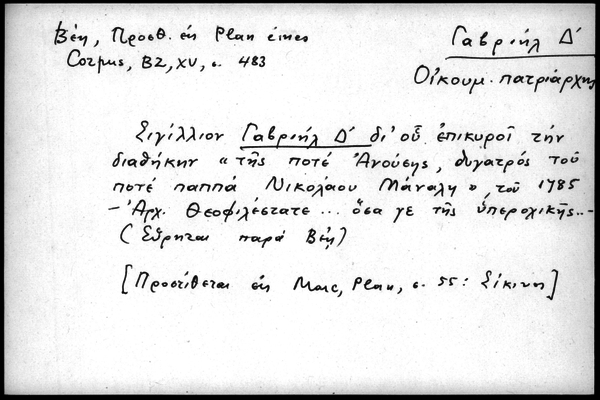 Βέη, Προσθ. εἰς Plan eines
Corpus, BZ, XV, σ. 483
Γαβριὴλ Δ΄
Οἰκουμ. πατριάρχης
Σιγίλλιον Γαβριὴλ Δ΄ δι' οὗ ἐπικυροῖ τὴν
διαθήκην «τῆς ποτὲ Ἀνούσης, θυγατρὸς τοῦ
ποτὲ παππᾶ Νικολάου Μάναλη», τοῦ 1785
– Ἀρχ. Θεοφιλέστατε ... ὅσα γε τῆς ὑπεροχικῆς.. –
(Εὕρηται παρὰ Βέῃ)
[Προστίθεται εἰς Marc, Plan, σ. 55: Σίκινη]